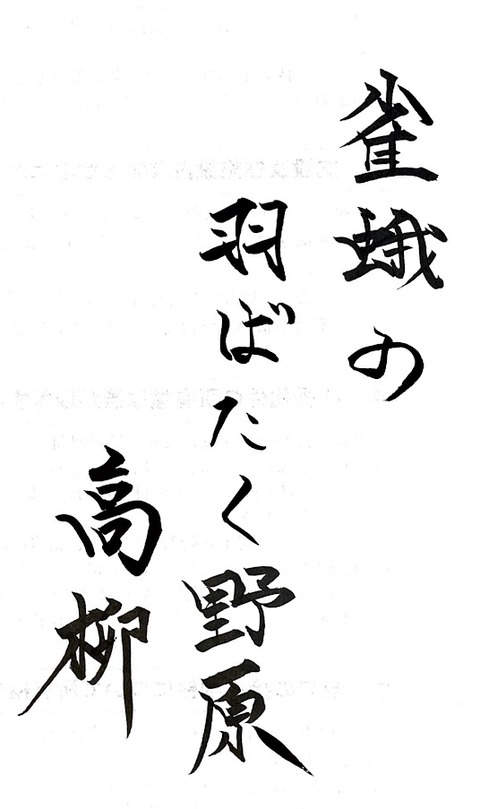 雀蛾の
羽ばたく野原
高柳